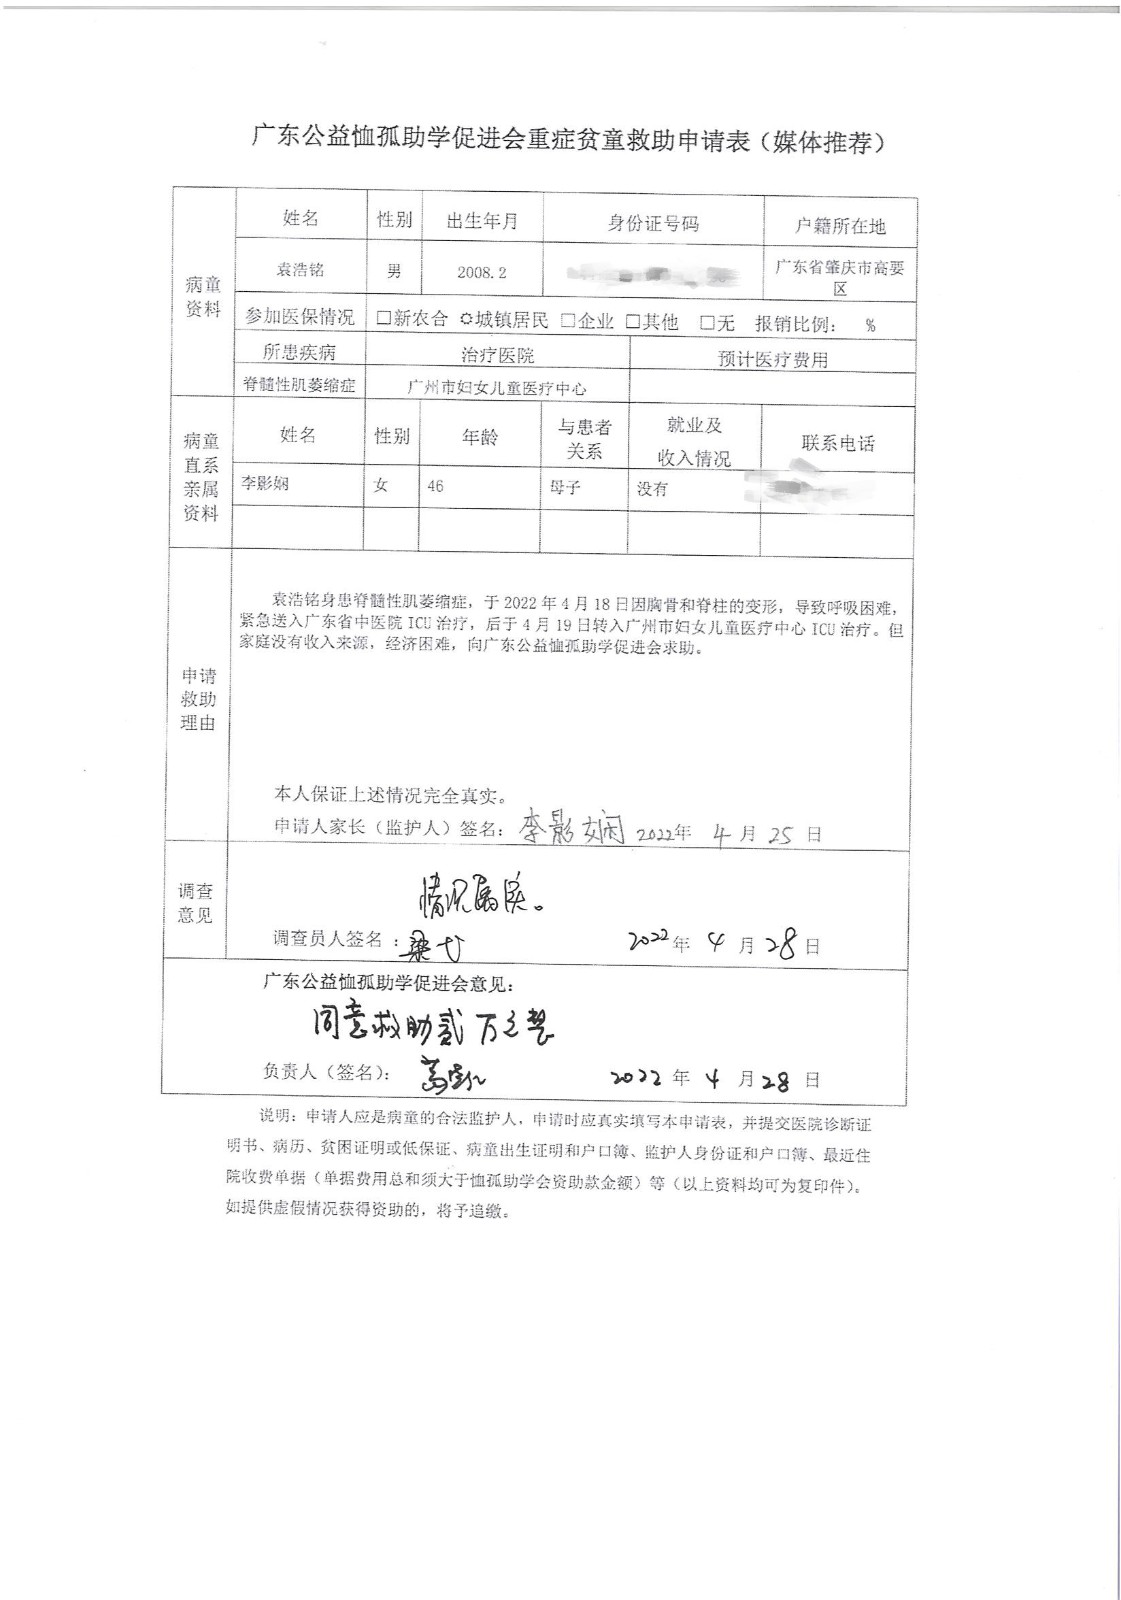 广东公益恤孤助学促进会重症贫童救助申请表（媒体推荐）
病童资料
姓名 性别 出生年月 身份证号码 户籍所在地
袁浩铭 男 2008.2 广东省肇庆市高要区
参加医保情况 □新农合 ✪城镇居民 □企业 □其他 □无 报销比例： %
所患疾病 治疗医院 预计医疗费用
脊髓性肌萎缩症 广州市妇女儿童医疗中心
病童直系亲属资料
姓名 性别 年龄 与患者关系 就业及收入情况 联系电话
李影娴 女 46 母子 没有
申请救助理由
袁浩铭身患脊髓性肌萎缩症，于 2022 年 4 月 18 日因胸骨和脊柱的变形，导致呼吸困难，
紧急送入广东省中医院 ICU 治疗，后于 4 月 19 日转入广州市妇女儿童医疗中心 ICU 治疗。但
家庭没有收入来源，经济困难，向广东公益恤孤助学促进会求助。
本人保证上述情况完全真实。
申请人家长（监护人）签名：李影娴 2022年 4 月 25 日
调查意见
情况属实。
调查员人签名：梁 2022 年 4 月 28 日
广东公益恤孤助学促进会意见：
同意救助贰万元整
负责人（签名）： 2022 年 4 月 28 日
说明：申请人应是病童的合法监护人，申请时应真实填写本申请表，并提交医院诊断证
明书、病历、贫困证明或低保证、病童出生证明和户口簿、监护人身份证和户口簿、最近住
院收费单据（单据费用总和须大于恤孤助学会资助款金额）等（以上资料均可为复印件）。
如提供虚假情况获得资助的，将予追缴。